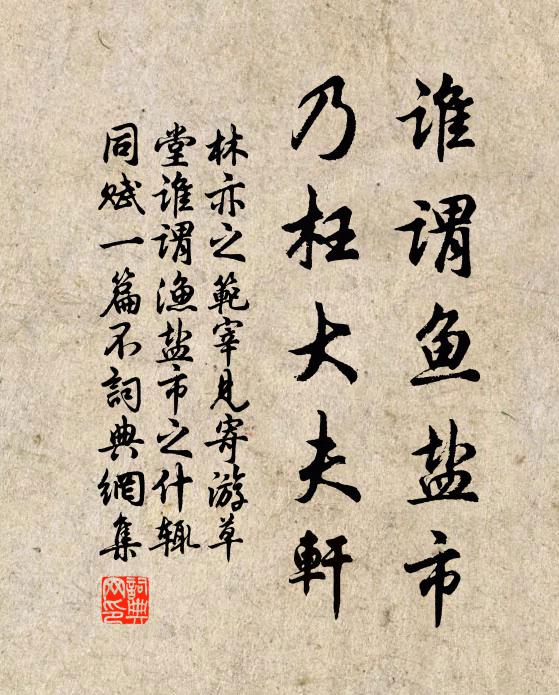 谁谓鱼盐市
乃枉大夫軒
林亦之範宰見寄游草
堂谁谓渔盐市之什辄
同赋一篇不詞典網集
詞典
网印